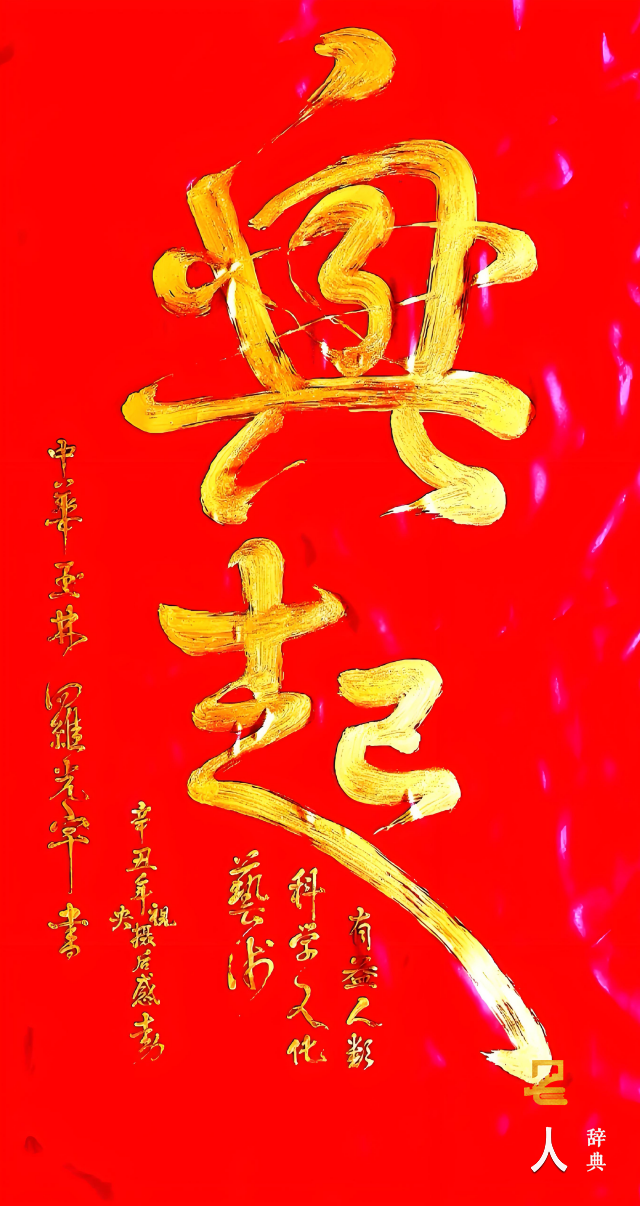 興起
有益人類
科学文化
藝術
辛丑年央視摄后感動
中華玉林 羅光宇書
名人
辞典